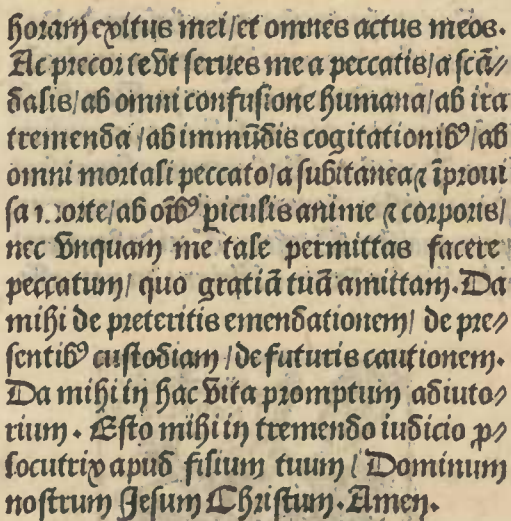 horam exitus mei/et omnes actus meos.
Ac precor te vt serues me a peccatis/a scã⸗
dalis/ab omni confusione humana/ab ira
tremenda/ab immũdis cogitationibꝰ/ab
omni mortali peccato/a subitanea ⁊ ĩproui
sa morte/ab oĩbꝰ piculis anime ⁊ corporis/
nec vnquam me tale permittas facere
peccatum/ quo gratiã tuã amittam. Da
mihi de preteritis emendationem/ de pre⸗
sentibꝰ custodiam/de futuris cautionem.
Da mihi in hac vita promptum adiuto⸗
rium. Esto mihi in tremendo iudicio p⸗
locutrix apud filium tuum/ Dominum
nostrum Jesum Christum. Amen.